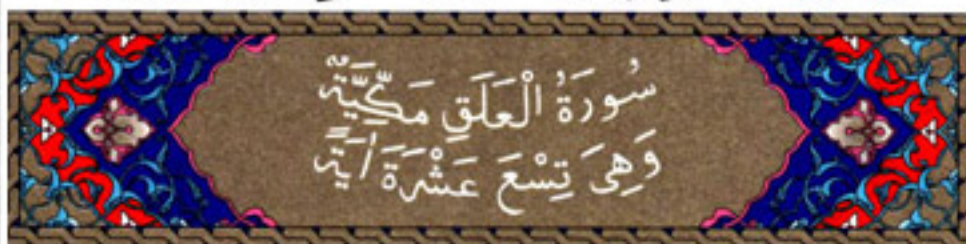 سُورَةُ الْعَلَقِ مَكِّيَّةٌ
وَهِىَ تِسْعَ عَشْرَةَ اٰيَةً